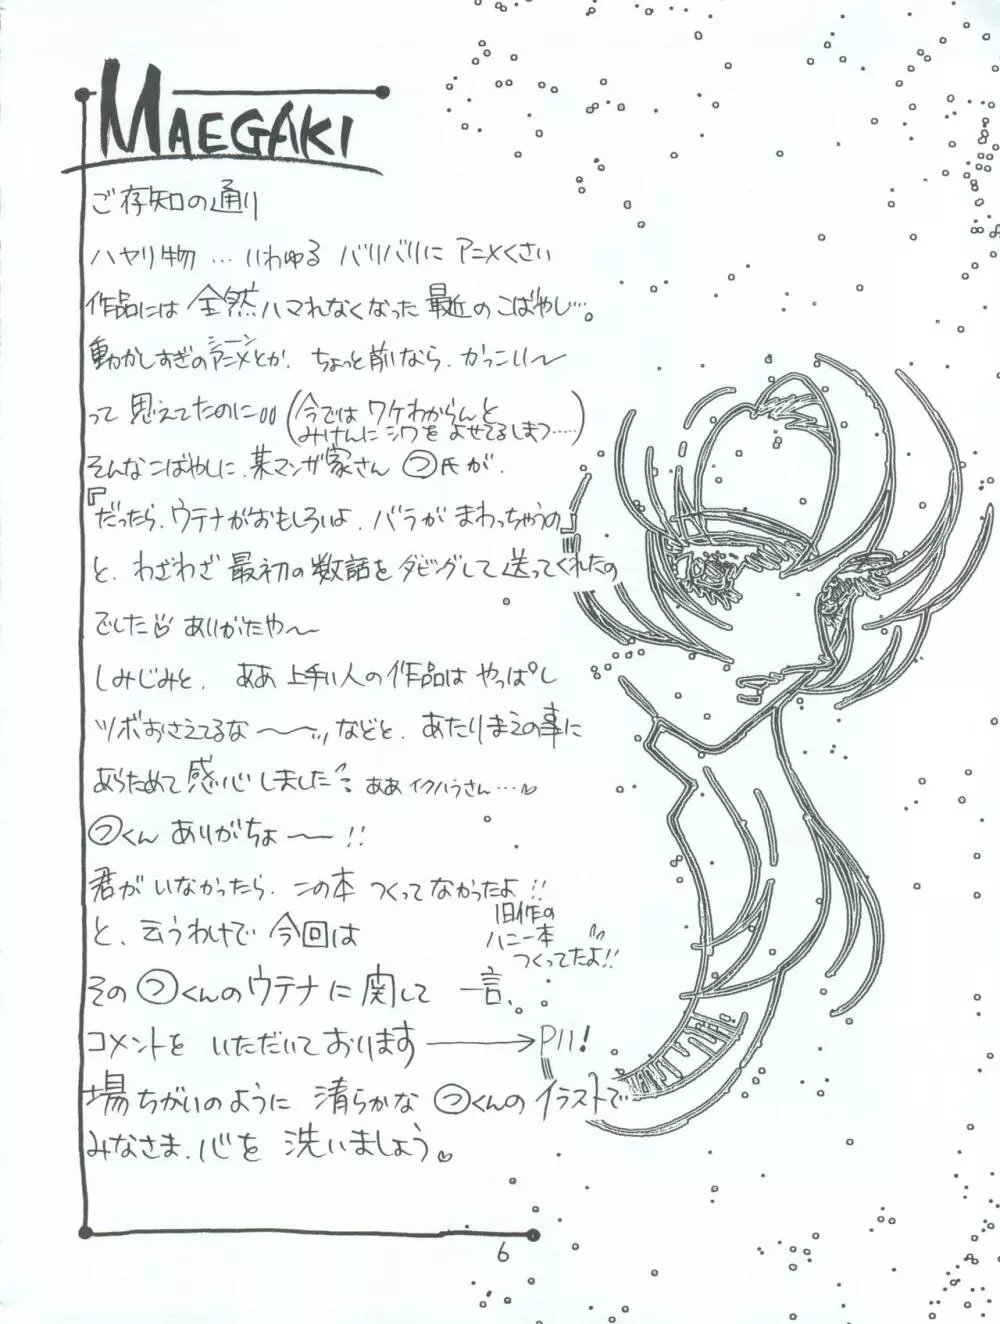 MAEGAKI
ご存知の通り
ハヤリ物…いわゆる バリバリに アニメくさい
作品には 全然ハマれなくなった 最近の こばやし…。
シーン
動かしすぎのアニメとか、ちょっと前なら、かっこい〜
って 思えてたのに
(今では ワケわからんと
みけんに シワを よせてるしまつ……)
そんなこばやしに、某マンガ家さん つ氏が、
『だったら、ウテナがおもしろいよ、バラが まわっちゃうの』
と、わざわざ 最初の数話を ダビングして 送ってくれたの
でした♡ ありがたや〜
しみじみと、ああ 上手い人の作品は やっぱし
ツボおさえてるな〜〜 などと、あたりまえの事に
あらためて 感心しました ああ イクハラさん…♡
つくん ありがちょ〜!!
君が いなかったら、この本 つくって なかったよ!!
旧作の
ハニー本
つくってたよ!!
と、云うわけで 今回は
その つくんのウテナに 関して 一言、
コメントを いただいて おります → P11!
場ちがいのように 清らかな つくんの イラストで
みなさま、心を 洗いましょう♡
6